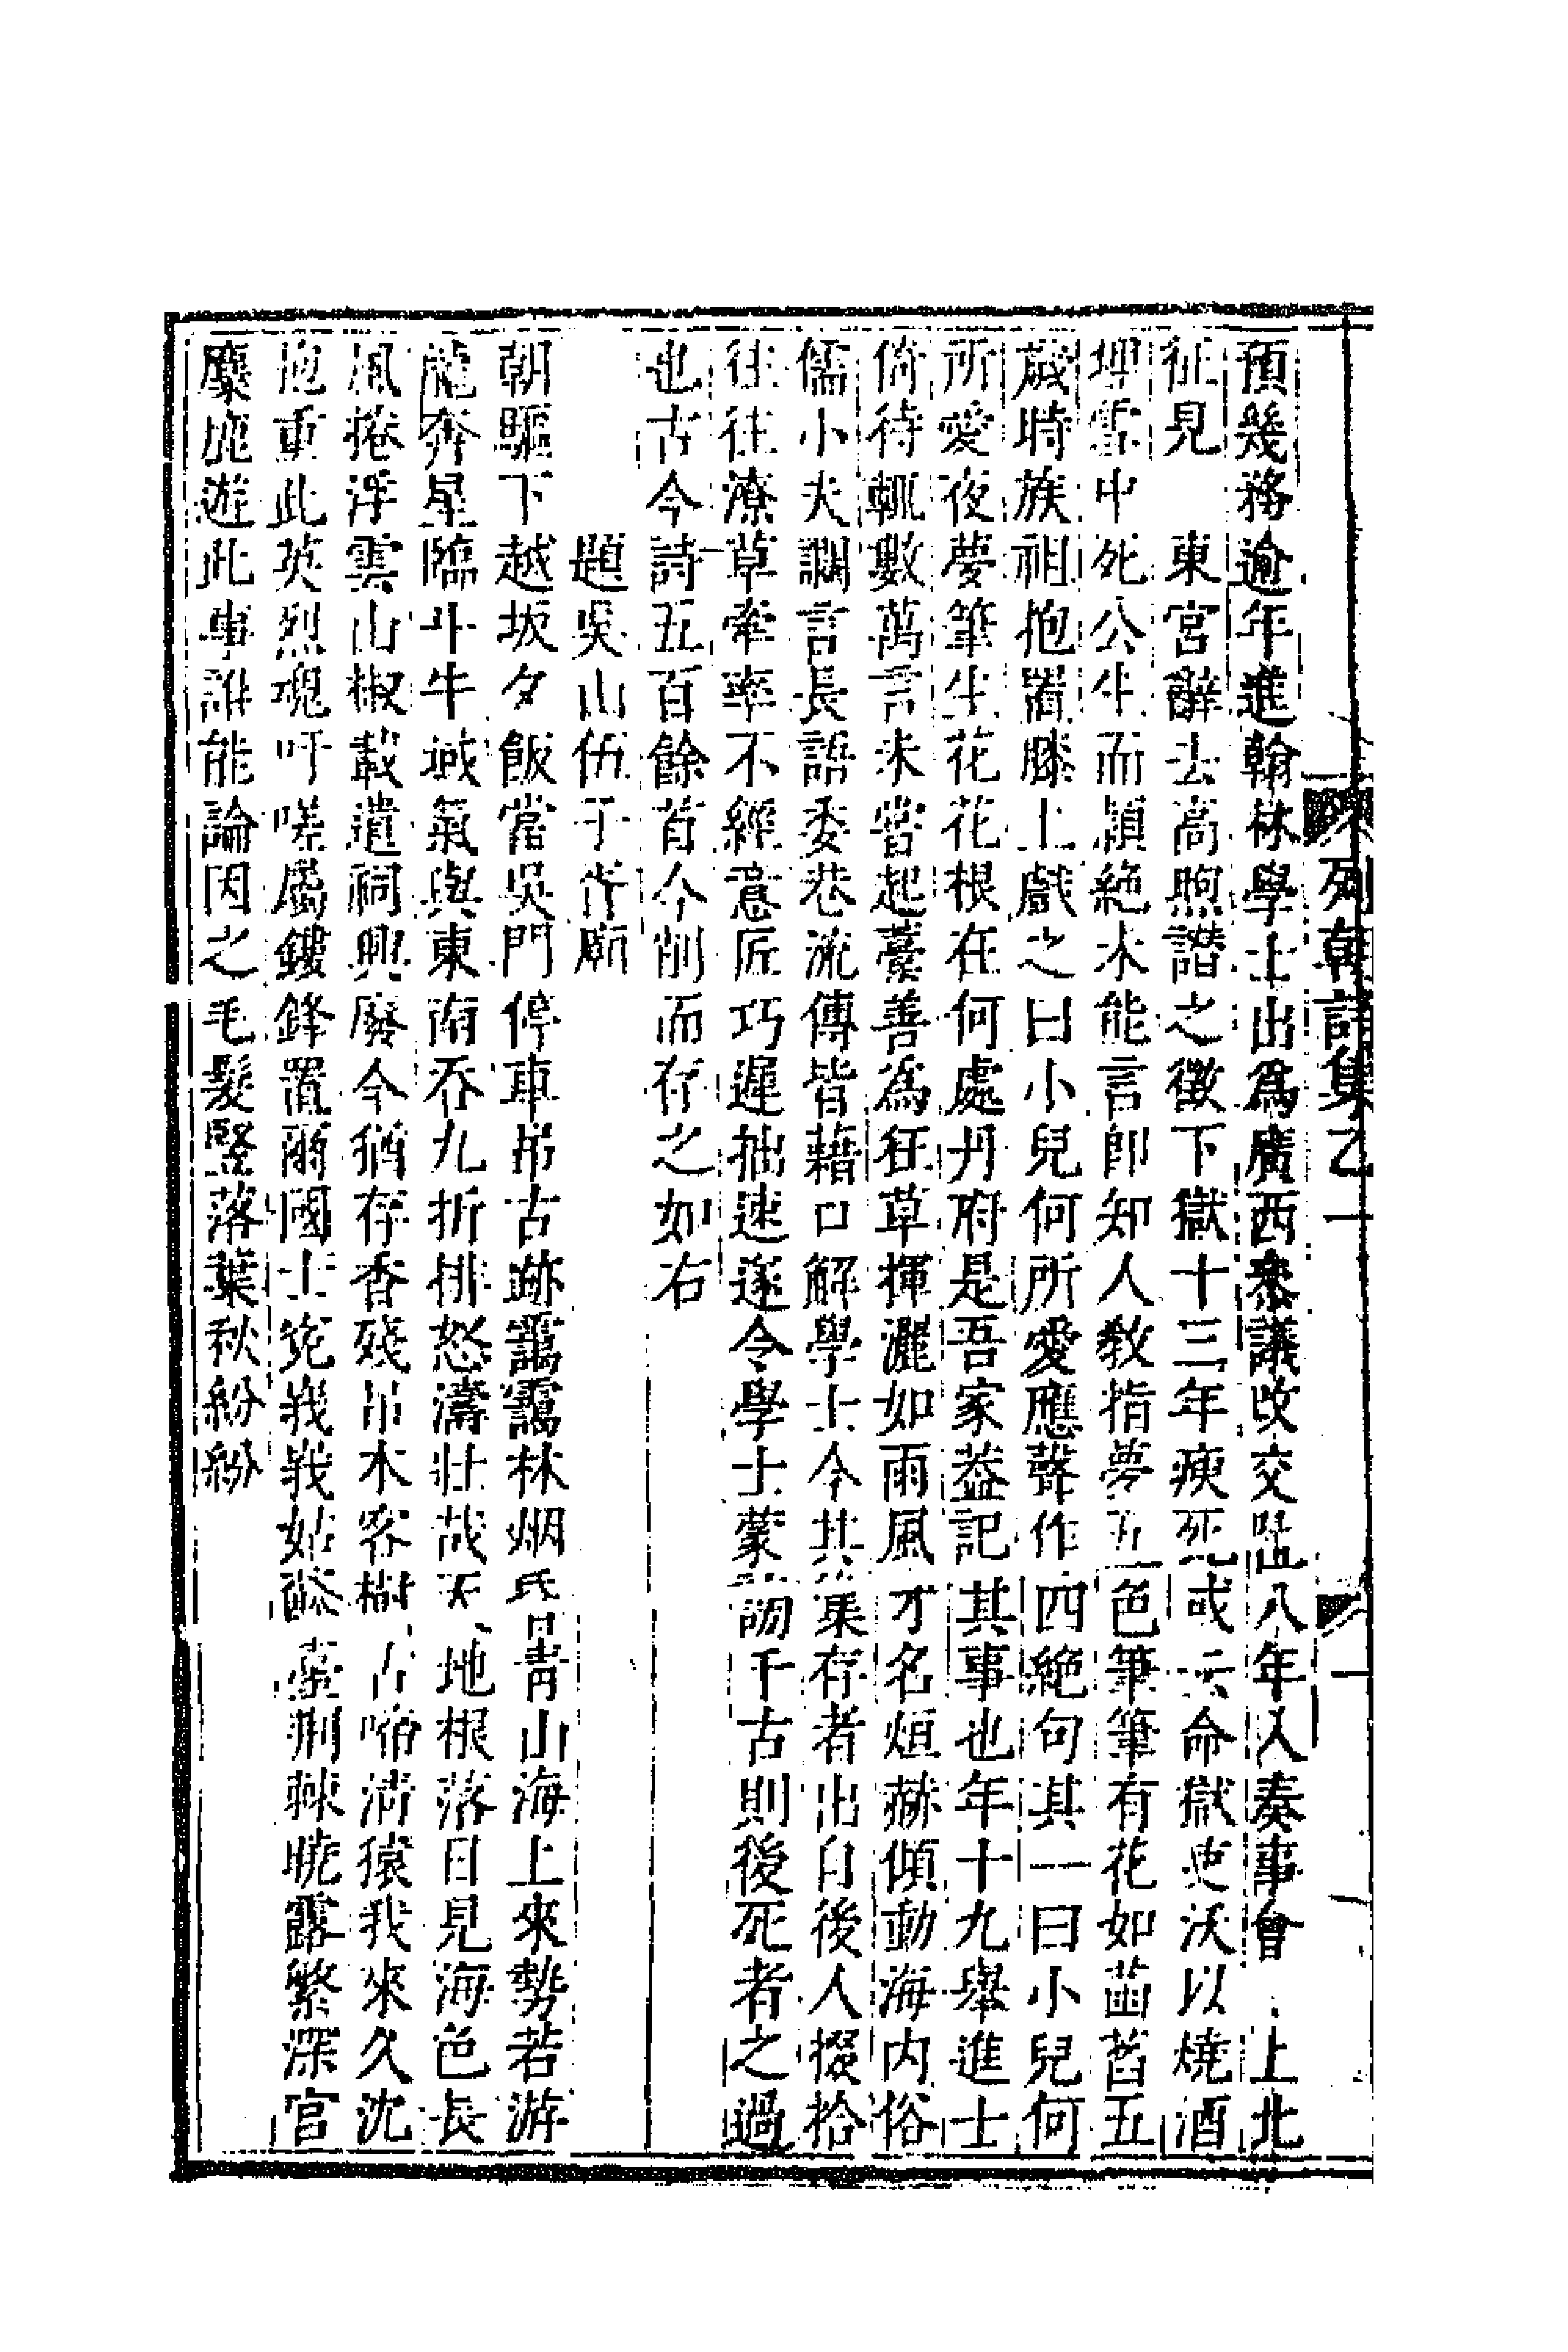 列朝詩集乙一
一
預幾務逾年進翰林學士出爲廣西叅議改交阯八年入奏事會 上北
征見 東宮辭去高煦譖之徵下獄十三年瘐死或云命獄吏沃以燒酒
埋雪中死公生而頴絶未能言卽知人敎指夢五色筆筆有花如菡萏五
歲時族祖抱置膝上戲之曰小兒何所愛應聲作四絶句其一曰小兒何
所愛夜夢筆生花花根在何處丹府是吾家葢記其事也年十九舉進士
倚待輒數萬言未嘗起藁善爲狂草揮灑如雨風才名烜赫傾動海内俗
儒小夫讕言長語委巷流傳皆藉口解學士今其集存者出自後人掇拾
往往潦草牽率不經意匠巧遲拙速遂令學士蒙謗千古則後死者之過
也古今詩五百餘首今削而存之如右
題吳山伍子胥廟
朝驅下越坂夕飯當吳門停車吊古跡靄靄林烟昏青山海上來勢若游
龍奔星臨斗牛域氣與東南吞九折排怒濤壯哉天地根落日見海色長
風捲浮雲山椒載遺祠興廢今猶存香殘吊木客樹古啼淸猿我來久沈
抱重此英烈魂吁嗟屬鏤鋒置爾國士寃峩峩姑蘇臺荆棘曉露繁深宮
麋鹿遊此事誰能論因之毛髮竪落葉秋紛紛